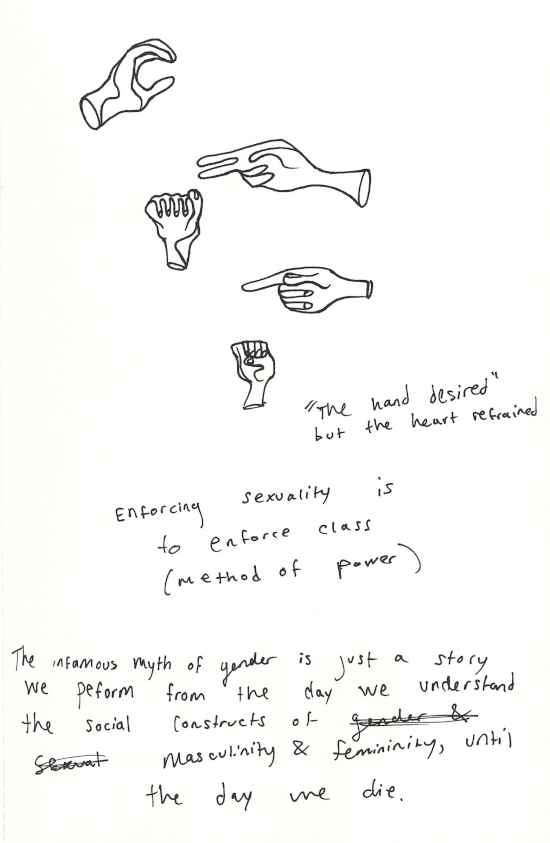 "The hand desired"
but the heart refrained
Enforcing sexuality is
to enforce class
(method of power)
The infamous myth of gender is just a story
we peform from the day we understand
the social constructs of gender &
sexual masculinity & femininity, until
the day we die.